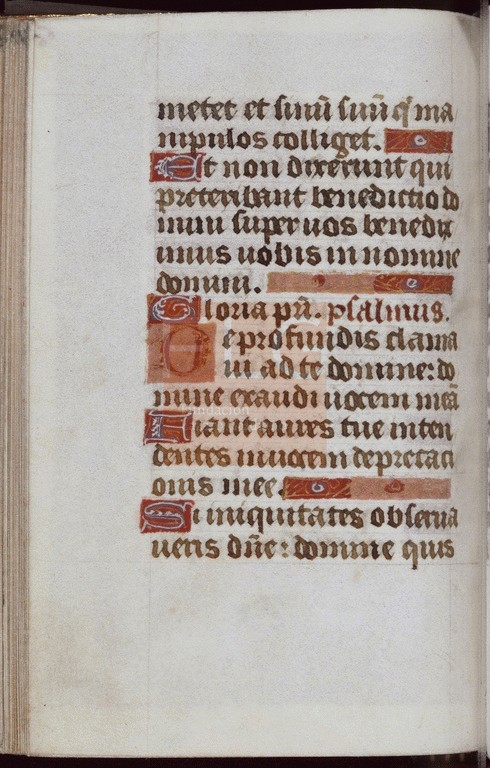 metet et sinū suū q̄ ma
nipulos colliget.
Et non dixerunt qui
preteribant benedictio do
mini super uos benedix
imus uobis in nomine
domini.
Gloria pr̄i. psalmus.
De profundis clama
ui ad te domine: do
mine exaudi uocem meā
Fiant aures tue inten
dentes in uocem deprecati
onis mee.
Si iniquitates obserua
ueris dn̄e: domine quis
Fundación